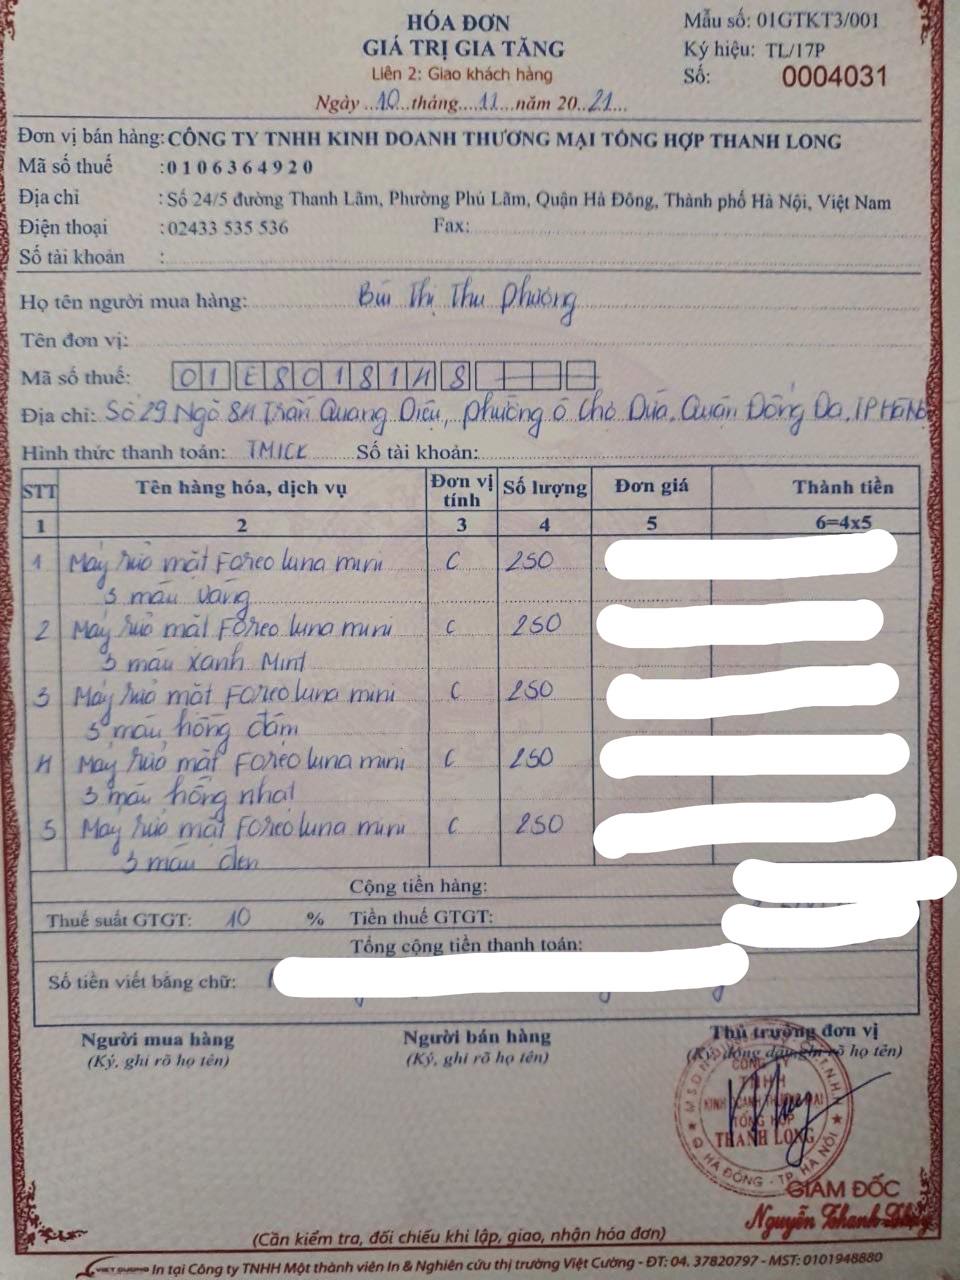 HÓA ĐƠN
GIÁ TRỊ GIA TĂNG
Liên 2: Giao khách hàng
Ngày ..10...tháng....11...năm 20..21...
Mẫu số: 01GTKT3/001
Ký hiệu: TL/17P
Số: 0004031
Đơn vị bán hàng: CÔNG TY TNHH KINH DOANH THƯƠNG MẠI TỔNG HỢP THANH LONG
Mã số thuế : 0 1 0 6 3 6 4 9 2 0
Địa chỉ : Số 24/5 đường Thanh Lãm, Phường Phú Lãm, Quận Hà Đông, Thành phố Hà Nội, Việt Nam
Điện thoại : 02433 535 536 Fax:
Số tài khoản :
Họ tên người mua hàng: Bùi Thị Thu Phương
Tên đơn vị:
Mã số thuế: 01E8018148
Địa chỉ: Số 29 Ngõ 84 Trần Quang Diệu, phường Ô Chợ Dừa, Quận Đống Đa, TP Hà Nội
Hình thức thanh toán: TM/CK Số tài khoản:
STT Tên hàng hóa, dịch vụ Đơn vị tính Số lượng Đơn giá Thành tiền
1 2 3 4 5 6=4x5
1 Máy rửa mặt Foreo luna mini C 250
3 màu vàng
2 Máy rửa mặt Foreo luna mini C 250
3 màu xanh Mint
3 Máy rửa mặt Foreo luna mini C 250
3 màu hồng đậm
4 Máy rửa mặt Foreo luna mini C 250
3 màu hồng nhạt
5 Máy rửa mặt Foreo luna mini C 250
3 màu đen
Cộng tiền hàng:
Thuế suất GTGT: 10 % Tiền thuế GTGT:
Tổng cộng tiền thanh toán:
Số tiền viết bằng chữ:
Người mua hàng Người bán hàng Thủ trưởng đơn vị
(Ký, ghi rõ họ tên) (Ký, ghi rõ họ tên) (Ký, đóng dấu, ghi rõ họ tên)
CÔNG TY
TNHH
KINH DOANH THƯƠNG MẠI
TỔNG HỢP
THANH LONG
Q. HÀ ĐÔNG - TP. HÀ NỘI
GIÁM ĐỐC
Nguyễn Thanh
(Cần kiểm tra, đối chiếu khi lập, giao, nhận hóa đơn)
VIET CUONG In tại Công ty TNHH Một thành viên In & Nghiên cứu thị trường Việt Cường - ĐT: 04. 37820797 - MST: 0101948880